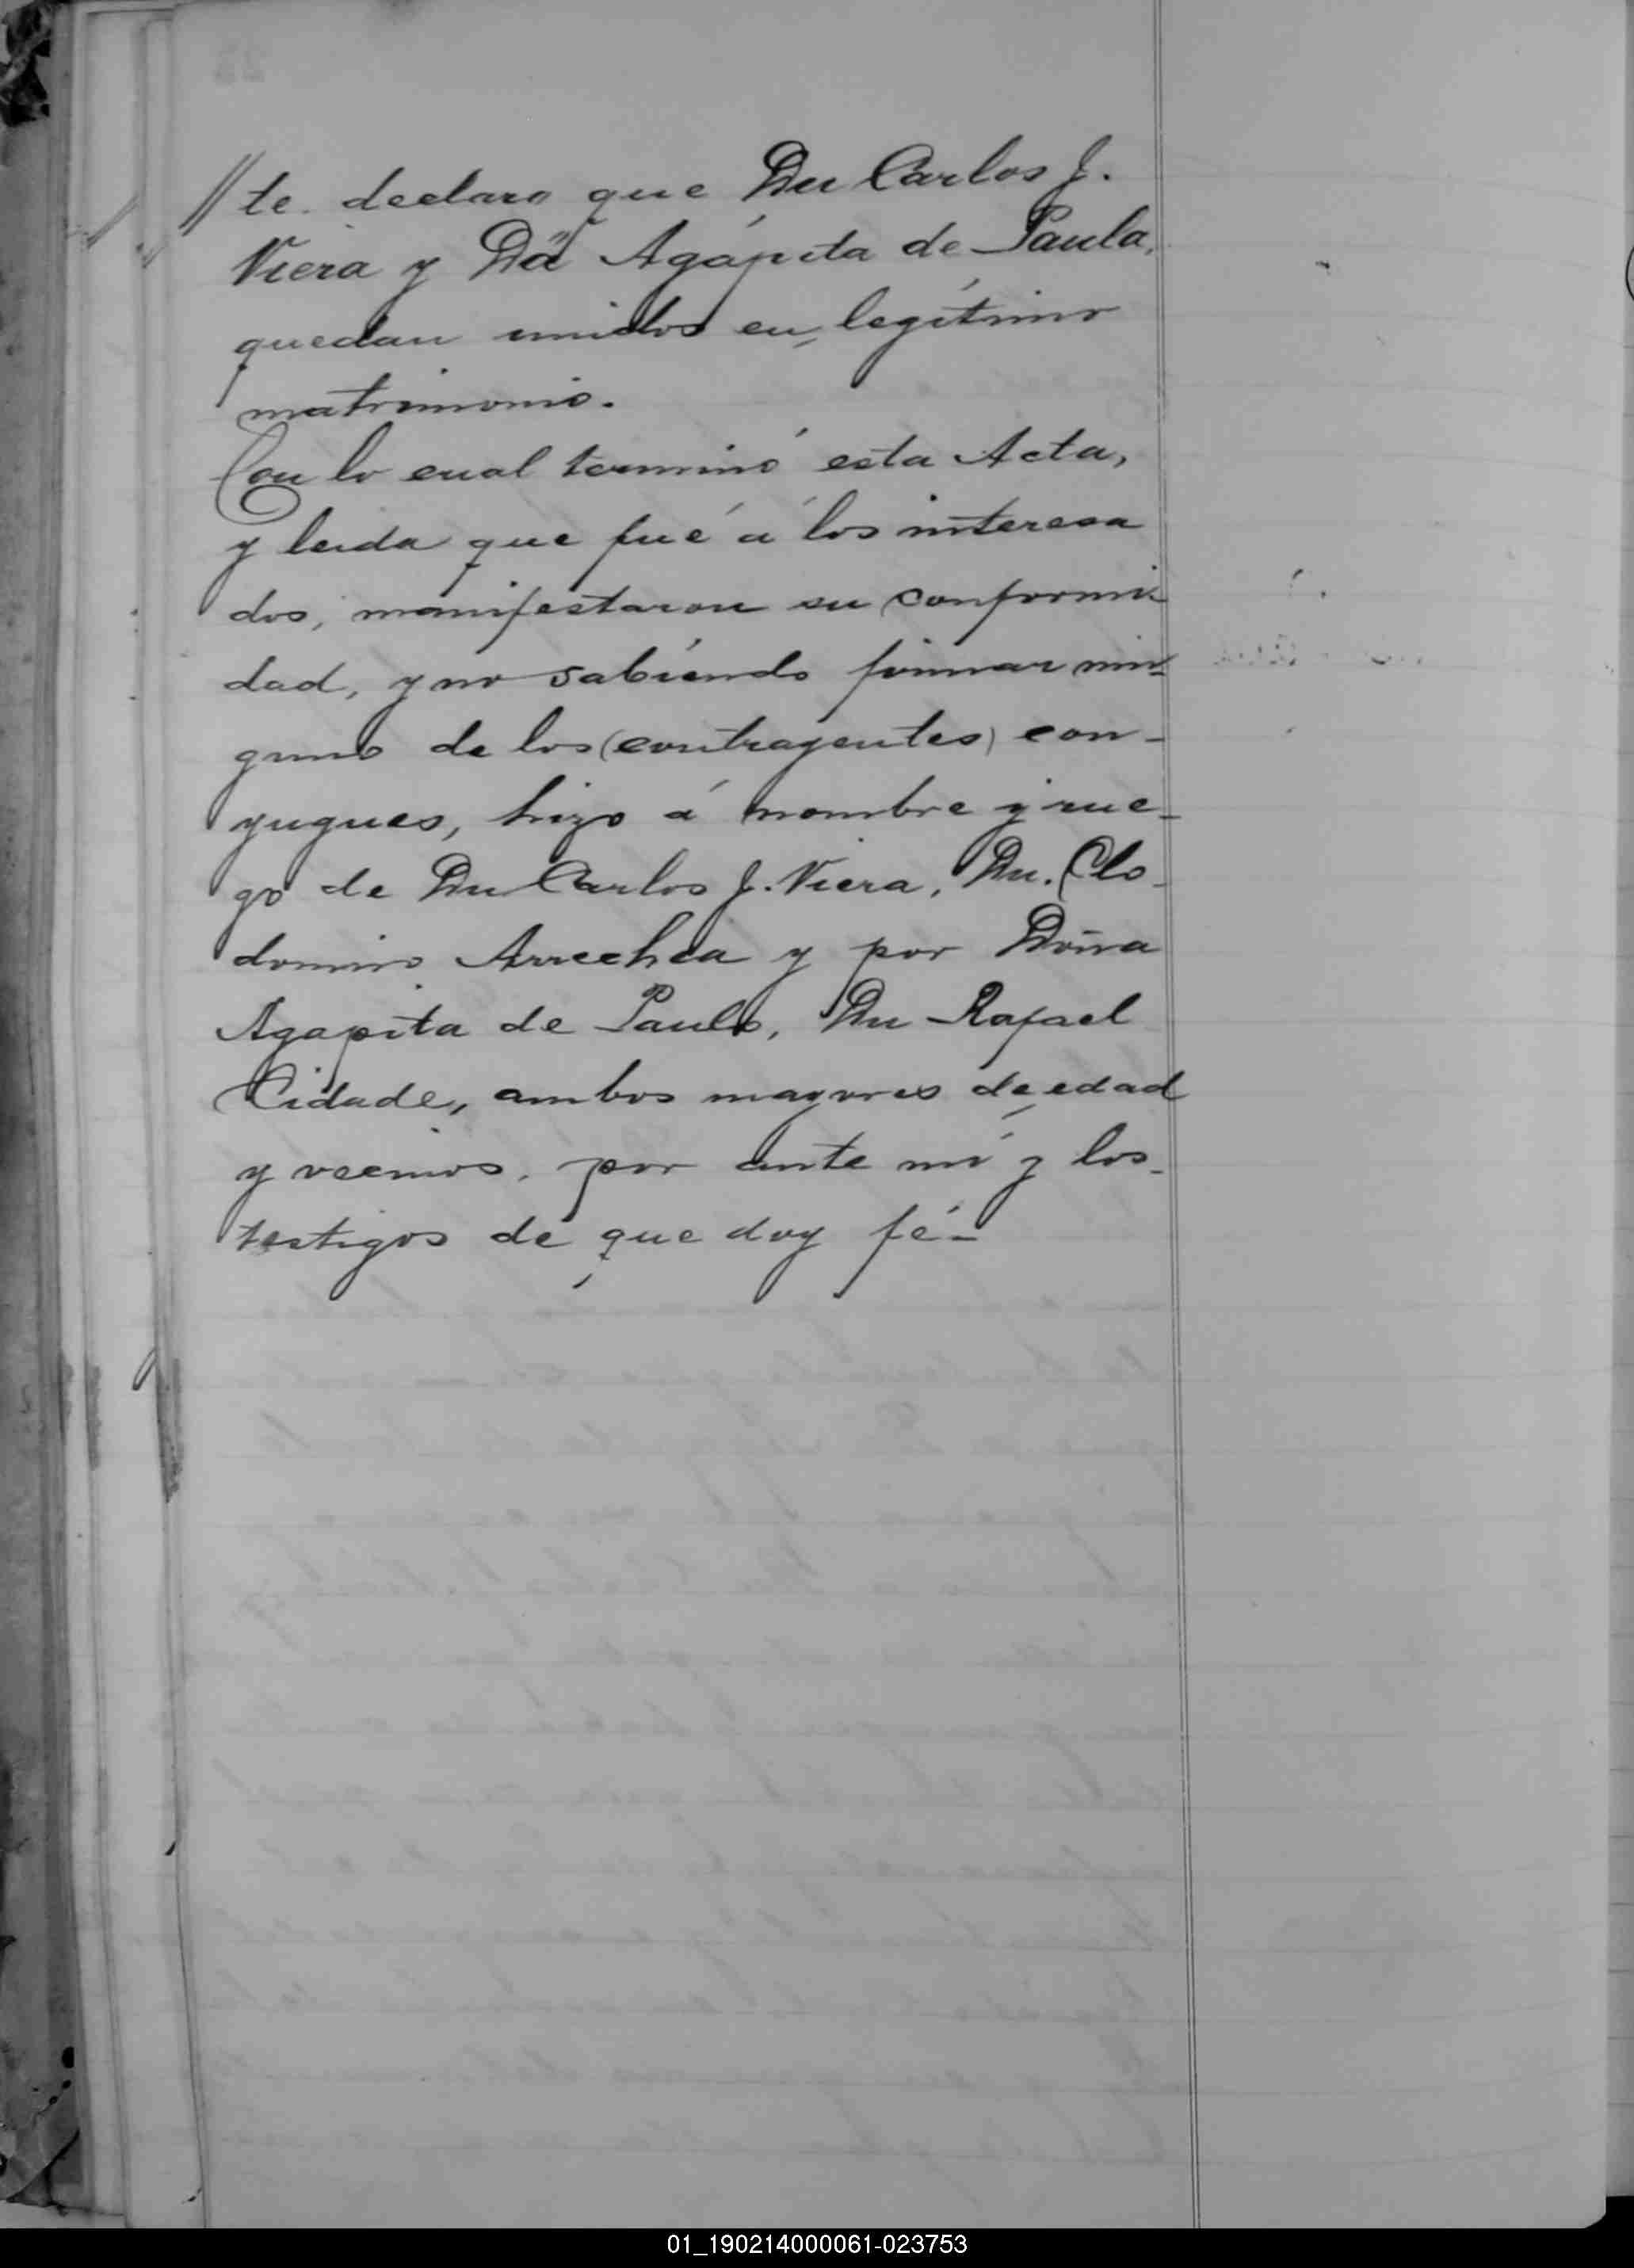 // te. declaro que Dn Carlos J.
Viera y Da Agápita de Paula,
quedan unidos en legítimo
matrimonio.
Con lo cual terminó esta Acta,
y leida que fué á los interesa
dos, manifestaron su conformi
dad, y no sabiendo firmar nin-
guno de los (contrayentes) con-
yugues, hizo á nombre y rue-
go de Dn Carlos J. Viera, Dn. Clo-
domiro Arrechea y por Doña
Agapita de Paula, Dn Rafael
Cidade, ambos mayores de edad
y vecinos, por ante mí y los
testigos de que doy fé-
01_190214000061-023753